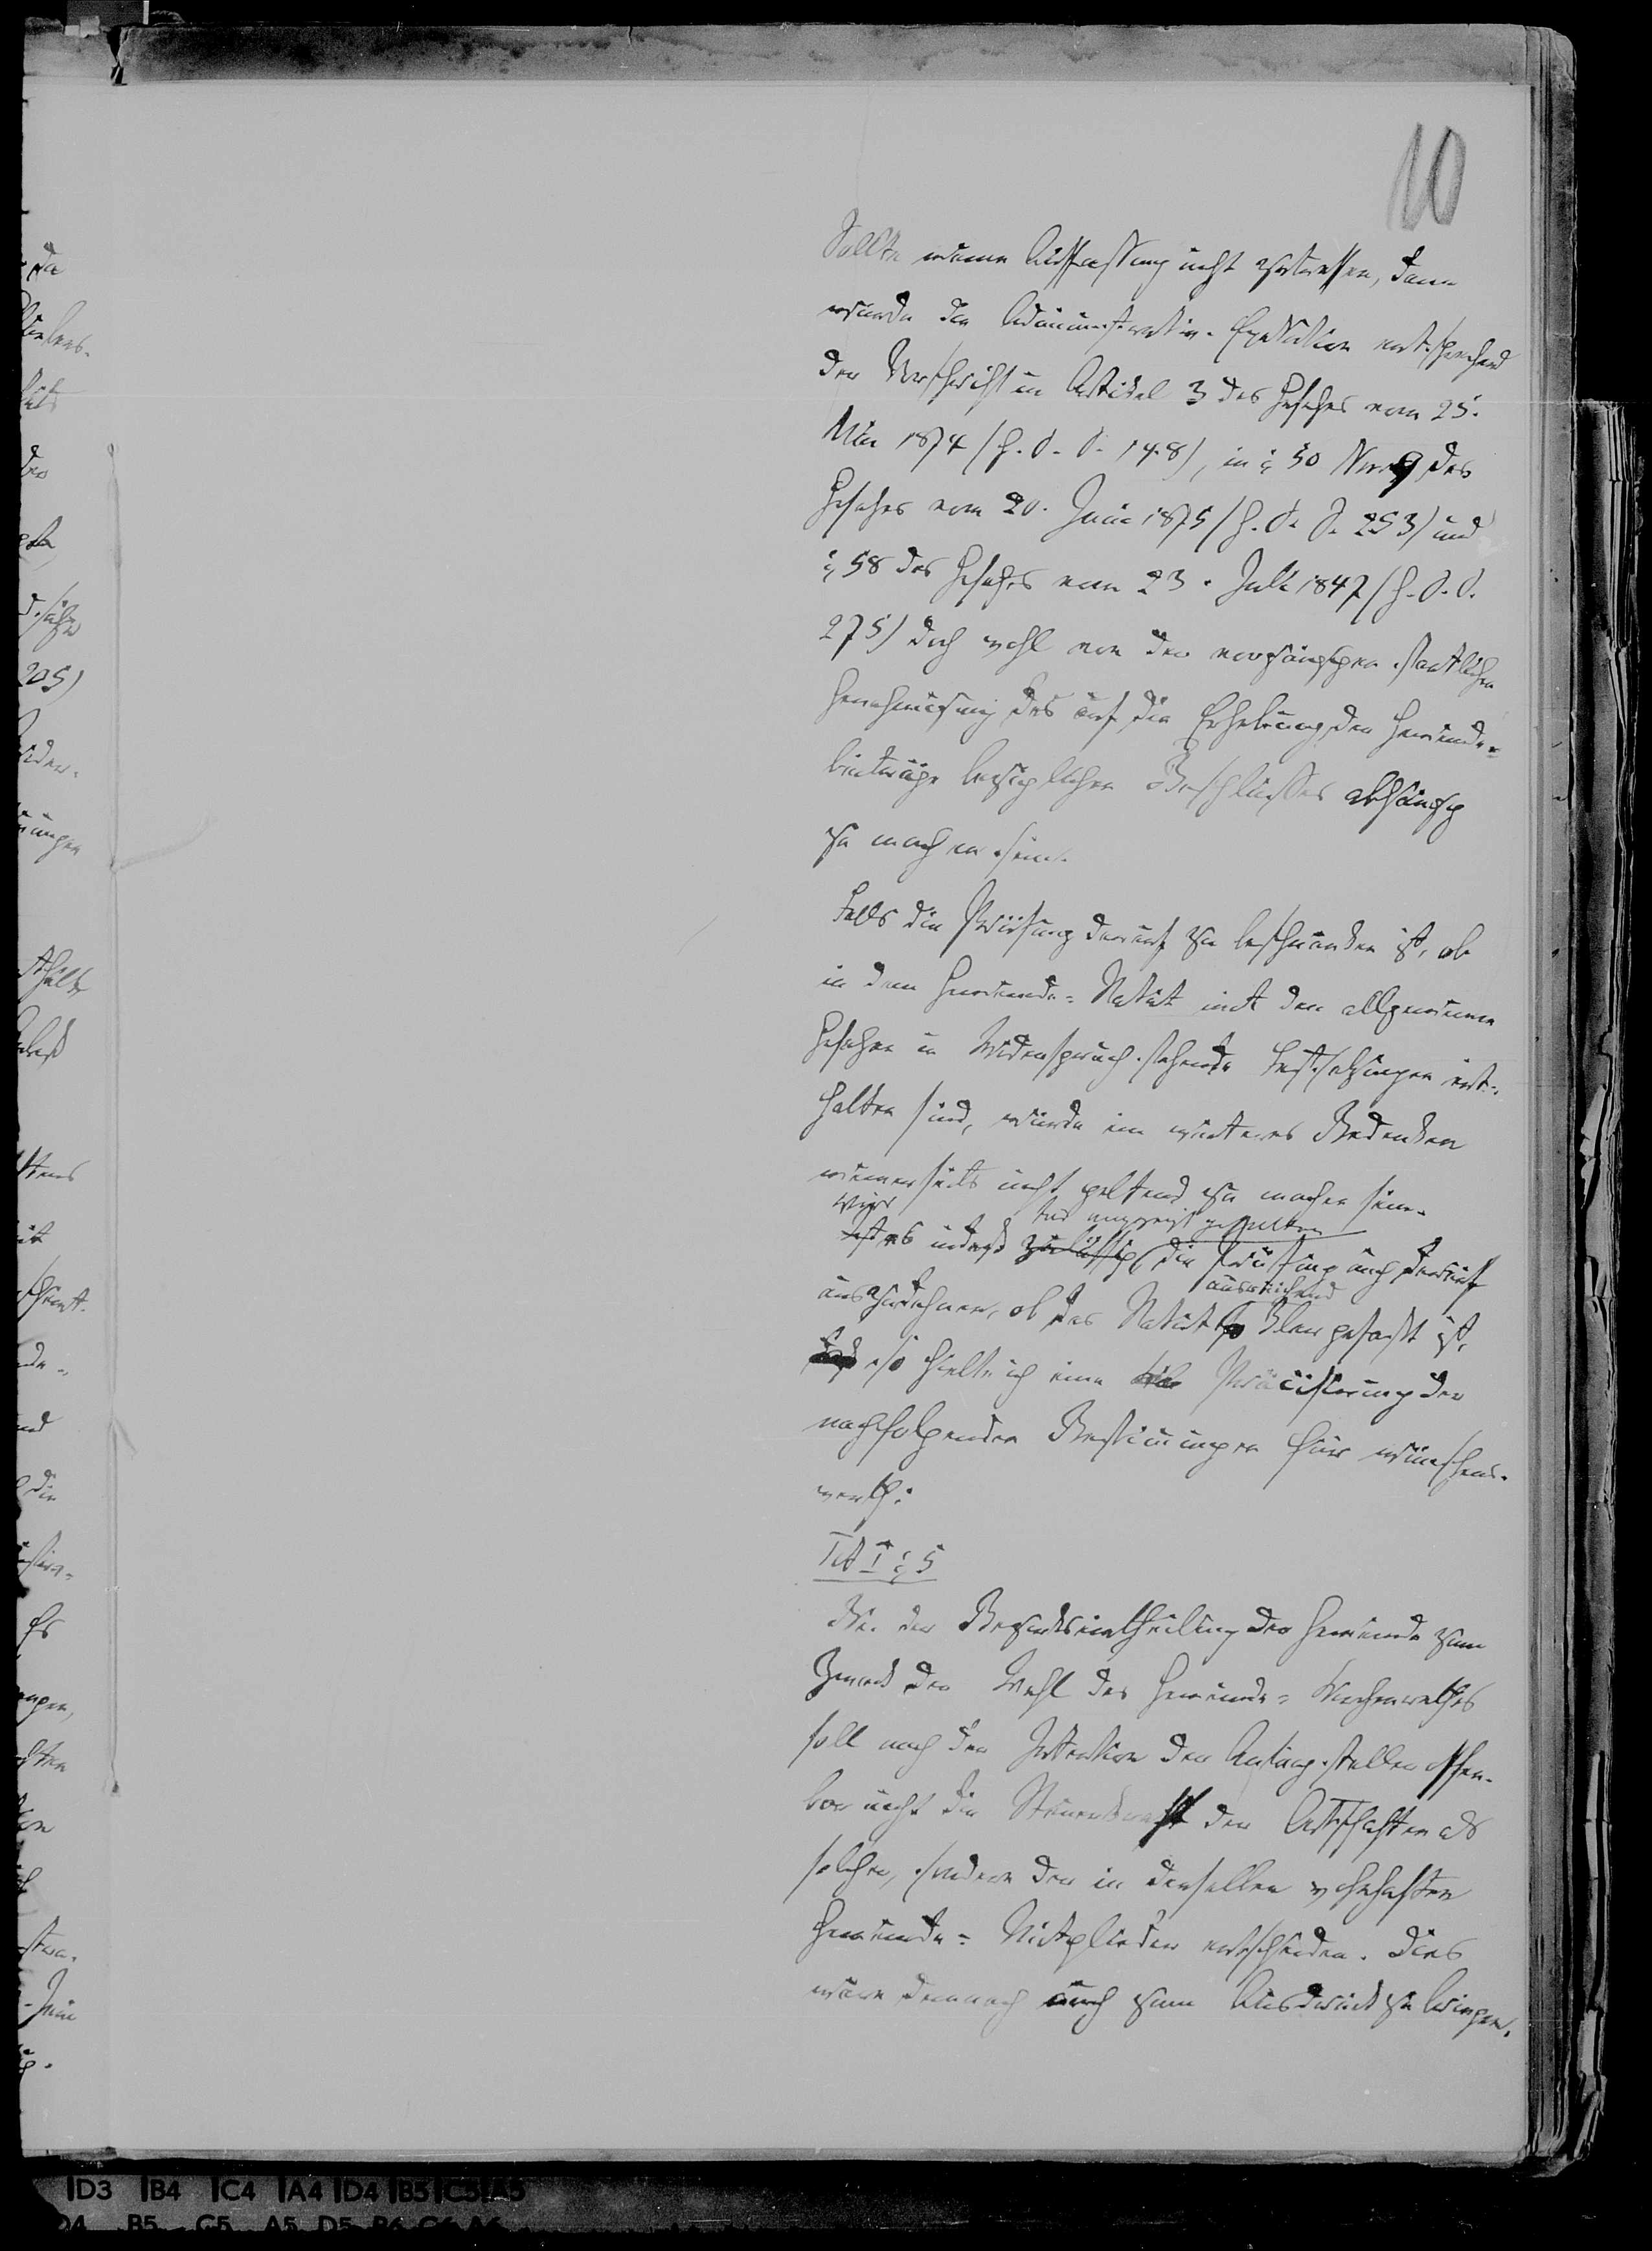 10
Sollte meine Auffassung nicht zutreffen, dann
würde die Administrativ-Exekution entsprechend
der Vorschrift in Artikel 3 des Gesetzes vom 25.
Mai 1874 (G. S. S. 148), in § 50 Nro 9 des
Gesetzes vom 20. Juni 1875 (G. S. S. 253) und
§ 58 des Gesetzes vom 23. Juli 1847 (G. S. S.
275) doch wohl von der vorgängigen staatlichen
Genehmigung des auf die Erhebung der Gemeinde-
beiträge bezüglichen Beschlusses abhängig
zu machen sein.
Falls die Prüfung darauf zu beschränken ist, ob
in dem Gemeinde-Statut mit den allgemeinen
Gesetzen in Widerspruch stehende Festsetzungen ent-
halten sind, würde ein weiteres Bedenken
meinerseits nicht geltend zu machen sein.
Wird
für angezeigt gehalten
ist es indeß zulässig, die Prüfung auch darauf
ausreichend
auszudehnen, ob das Statut klar gefaßt ist,
so hielte ich eine Präcisierung der
nachfolgenden Bestimmungen für wünschens-
werth:
Tit I § 5
Bei der Bezirkseintheilung der Gemeinde zum
Zweck der Wahl des Gemeinde-Kirchenrathes
soll nach der Intention der Antragsteller offen-
bar nicht die Steuerkraft der Ortschaften als
solche, sondern der in denselben wohnhaften
Gemeinde-Mitglieder entscheiden. Dies
wäre demnach auch zum Ausdruck zu bringen.